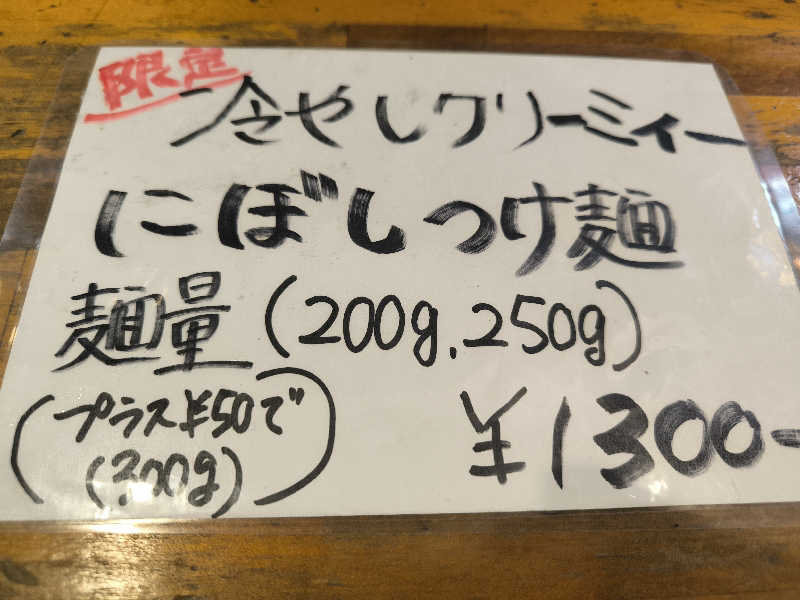 限定
冷やしクリーミィー
にぼしつけ麺
麺量(200g.250g)
(プラス¥50で
(300g))
¥1300-